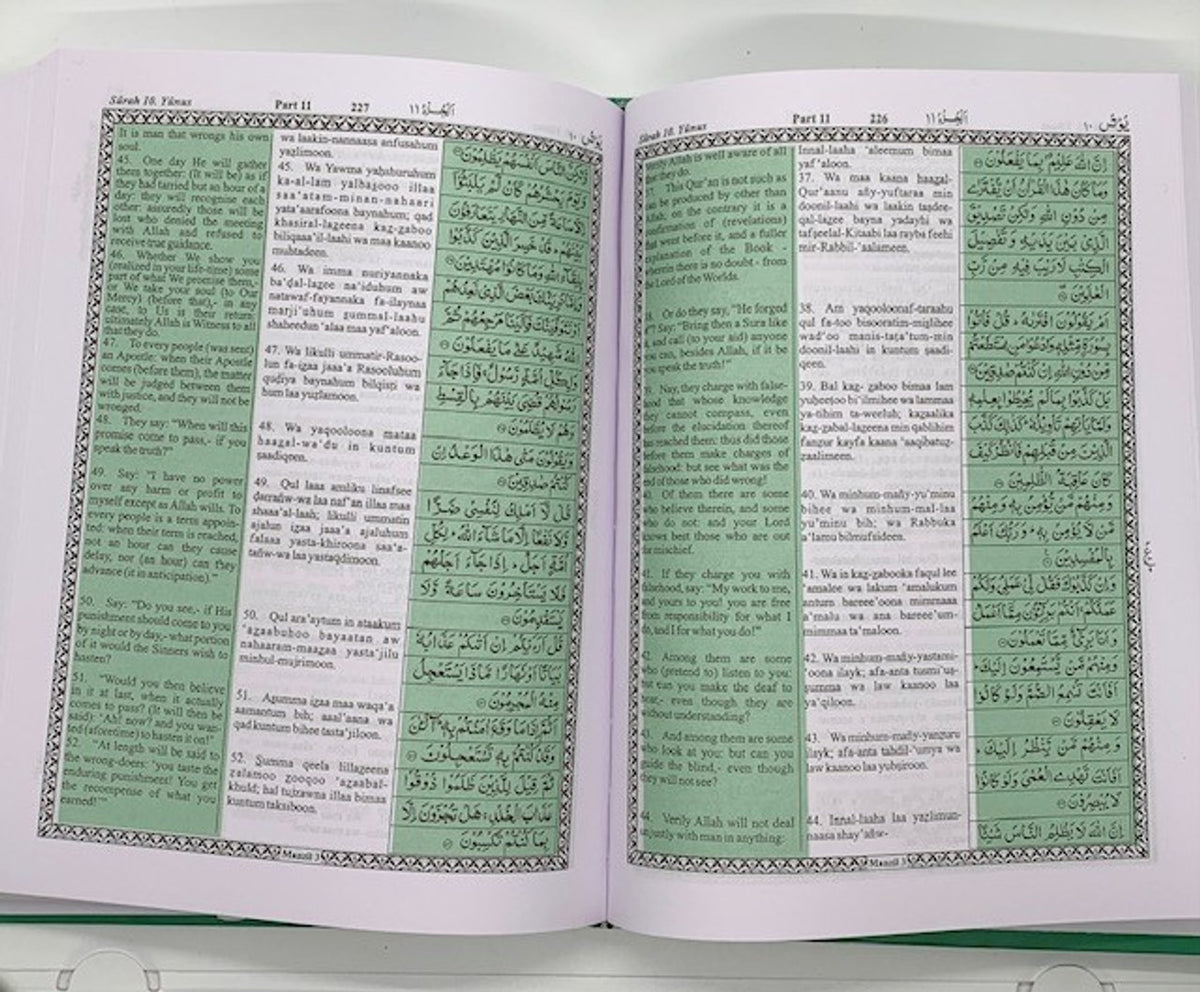 Sûrah 10. Yûnus
Part 11
226
اَلْجُزْءُ ١١
يُوْنُسَ ١٠
verily Allah is well aware of all
they do.
This Qur'an is not such as
can be produced by other than
Allah; on the contrary it is a
confirmation of (revelations)
that went before it, and a fuller
explanation of the Book -
wherein there is no doubt - from
the Lord of the Worlds.
Or do they say, "He forged
it"? Say: "Bring then a Sura like
it, and call (to your aid) anyone
you can, besides Allah, if it be
you speak the truth!"
Nay, they charge with false-
hood that whose knowledge
they cannot compass, even
before the elucidation thereof
has reached them: thus did those
before them make charges of
falsehood: but see what was the
end of those who did wrong!
40. Of them there are some
who believe therein, and some
who do not: and your Lord
knows best those who are out
for mischief.
41. If they charge you with
falsehood, say: "My work to me,
and yours to you! you are free
from responsibility for what I
do, and I for what you do!"
42. Among them are some
who (pretend to) listen to you:
but can you make the deaf to
hear,- even though they are
without understanding?
43. And among them are some
who look at you: but can you
guide the blind,- even though
they will not see?
44. Verily Allah will not deal
unjustly with man in anything:
Innal-laaha 'aleemum bimaa
yaf'aloon.
37. Wa maa kaana haagal-
Qur'aanu añy-yuftaraa min
doonil-laahi wa laakin taṣdee-
qal-lagee bayna yadayhi wa
tafṣeelal-Kitaabi laa rayba feehi
mir-Rabbil-'aalameen.
38. Am yaqooloonaf-taraahu
qul fa-too bisooratim-miglihee
wad'oo manis-taṭa'tum-min
doonil-laahi in kuntum ṣaadi-
qeen.
39. Bal kag-gaboo bimaa lam
yuḥeeṭoo bi'ilmihee wa lammaa
ya-tihim ta-weeluh; kagaalika
kag-gabal-lageena min qablihim
fanẓur kayfa kaana 'aaqibatuẓ-
ẓaalimeen.
40. Wa minhum-mañy-yu'minu
bihee wa minhum-mal-laa
yu'minu bih; wa Rabbuka
a'lamu bilmufsideen.
41. Wa in kag-gabooka faqul lee
'amalee wa lakum 'amalukum
antum bareee'oona mimmaaa
a'malu wa ana bareee'um-
mimmaa ta'maloon.
42. Wa minhum-mañy-yastami-
'oona ilayk; afa-anta tusmi'uṣ-
ṣumma wa law kaanoo laa
ya'qiloon.
43. Wa minhum-mañy-yanẓuru
ilayk; afa-anta tahdil-'umya wa
law kaanoo laa yubṣiroon.
44. Innal-laaha laa yaẓlimun-
naasa shay'añw-
اِنَّ اللّٰهَ عَلِيْمٌۢ بِمَا يَفْعَلُوْنَ
وَمَا كَانَ هٰذَا الْقُرْاٰنُ اَنْ يُّفْتَرٰى
مِنْ دُوْنِ اللّٰهِ وَلٰكِنْ تَصْدِيْقَ
الَّذِيْ بَيْنَ يَدَيْهِ وَ تَفْصِيْلَ
الْكِتٰبِ لَا رَيْبَ فِيْهِ مِنْ رَّبِّ
الْعٰلَمِيْنَ
اَمْ يَقُوْلُوْنَ افْتَرٰىهُ ؕ قُلْ فَاْتُوْا
بِسُوْرَةٍ مِّثْلِهٖ وَادْعُوْا مَنِ اسْتَطَعْتُمْ
مِّنْ دُوْنِ اللّٰهِ اِنْ كُنْتُمْ صٰدِقِيْنَ
بَلْ كَذَّبُوْا بِمَا لَمْ يُحِيْطُوْا بِعِلْمِهٖ
وَلَمَّا يَاْتِهِمْ تَاْوِيْلُهٗ ؕ كَذٰلِكَ كَذَّبَ
الَّذِيْنَ مِنْ قَبْلِهِمْ فَانْظُرْ كَيْفَ
كَانَ عَاقِبَةُ الظّٰلِمِيْنَ
وَمِنْهُمْ مَّنْ يُّؤْمِنُ بِهٖ وَمِنْهُمْ
مَّنْ لَّا يُؤْمِنُ بِهٖ ؕ وَرَبُّكَ اَعْلَمُ
بِالْمُفْسِدِيْنَ
وَاِنْ كَذَّبُوْكَ فَقُلْ لِّيْ عَمَلِيْ وَلَكُمْ
عَمَلُكُمْ ۚ اَنْتُمْ بَرِيْٓئُوْنَ مِمَّآ اَعْمَلُ
وَاَنَا بَرِيْٓءٌ مِّمَّا تَعْمَلُوْنَ
وَمِنْهُمْ مَّنْ يَّسْتَمِعُوْنَ اِلَيْكَ ؕ
اَفَاَنْتَ تُسْمِعُ الصُّمَّ وَلَوْ كَانُوْا
لَا يَعْقِلُوْنَ
وَمِنْهُمْ مَّنْ يَّنْظُرُ اِلَيْكَ ؕ
اَفَاَنْتَ تَهْدِي الْعُمْيَ وَلَوْ كَانُوْا
لَا يُبْصِرُوْنَ
اِنَّ اللّٰهَ لَا يَظْلِمُ النَّاسَ شَيْئًا
Manzil 3
Sûrah 10. Yûnus
Part 11
227
اَلْجُزْءُ ١١
يُوْنُسَ ١٠
It is man that wrongs his own
soul.
45. One day He will gather
them together: (it will be) as if
they had tarried but an hour of a
day: they will recognise each
other: assuredly those will be
lost who denied the meeting
with Allah and refused to
receive true guidance.
46. Whether We show you
(realized in your life-time) some
part of what We promise them,-
or We take your soul (to Our
Mercy) (before that),- in any
case, to Us is their return:
ultimately Allah is Witness to all
that they do.
47. To every people (was sent)
an Apostle: when their Apostle
comes (before them), the matter
will be judged between them
with justice, and they will not be
wronged.
48. They say: "When will this
promise come to pass,- if you
speak the truth?"
49. Say: "I have no power
over any harm or profit to
myself except as Allah wills. To
every people is a term appoin-
ted: when their term is reached,
not an hour can they cause
delay, nor (an hour) can they
advance (it in anticipation)."
50. Say: "Do you see,- if His
punishment should come to you
by night or by day,- what portion
of it would the Sinners wish to
hasten?
51. "Would you then believe
in it at last, when it actually
comes to pass? (It will then be
said): 'Ah! now? and you wan-
ted (aforetime) to hasten it on!'
52. "At length will be said to
the wrong-doers: 'you taste the
enduring punishment! You get
the recompense of what you
earned!'"
wa laakin-nannaasa anfusahum
yaẓlimoon.
45. Wa Yawma yaḥshuruhum
ka-al-lam yalbagooo illaa
saa'atam-minan-nahaari
yata'aarafoona baynahum; qad
khasiral-lageena kag-gaboo
biliqaaa'il-laahi wa maa kaanoo
muhtadeen.
46. Wa imma nuriyannaka
ba'ḍal-lagee na'iduhum aw
natawaf-fayannaka fa-ilaynaa
marji'uhum gummal-laahu
shaheedun 'alaa maa yaf'aloon.
47. Wa likulli ummatir-Rasoo-
lun fa-igaa jaaa'a Rasooluhum
quḍiya baynahum bilqisṭi wa
hum laa yuẓlamoon.
48. Wa yaqooloona mataa
haagal-wa'du in kuntum
ṣaadiqeen.
49. Qul laaa amliku linafsee
ḍarrañw-wa laa naf'an illaa maa
shaaa'al-laah; likulli ummatin
ajalun igaa jaaa'a ajaluhum
falaaa yasta-khiroona saa'a-
tañw-wa laa yastaqdimoon.
50. Qul ara'aytum in ataakum
'agaabuhoo bayaatan aw
nahaaram-maagaa yasta'jilu
minhul-mujrimoon.
51. Aṣumma igaa maa waqa'a
aamantum bih; aaal'aana wa
qad kuntum bihee tasta'jiloon.
52. Ṣumma qeela lillageena
ẓalamoo gooqoo 'agaabal-
khuld; hal tujzawna illaa bimaa
kuntum taksiboon.
وَّلٰكِنَّ النَّاسَ اَنْفُسَهُمْ يَظْلِمُوْنَ
وَيَوْمَ يَحْشُرُهُمْ كَاَنْ لَّمْ يَلْبَثُوْٓا
اِلَّا سَاعَةً مِّنَ النَّهَارِ يَتَعَارَفُوْنَ
بَيْنَهُمْ ؕ قَدْ خَسِرَ الَّذِيْنَ كَذَّبُوْا
بِلِقَآءِ اللّٰهِ وَمَا كَانُوْا مُهْتَدِيْنَ
وَاِمَّا نُرِيَنَّكَ بَعْضَ الَّذِيْ نَعِدُهُمْ
اَوْ نَتَوَفَّيَنَّكَ فَاِلَيْنَا مَرْجِعُهُمْ ثُمَّ
اللّٰهُ شَهِيْدٌ عَلٰى مَا يَفْعَلُوْنَ
وَلِكُلِّ اُمَّةٍ رَّسُوْلٌ ۚ فَاِذَا جَآءَ
رَسُوْلُهُمْ قُضِيَ بَيْنَهُمْ بِالْقِسْطِ
وَهُمْ لَا يُظْلَمُوْنَ
وَيَقُوْلُوْنَ مَتٰى هٰذَا الْوَعْدُ اِنْ
كُنْتُمْ صٰدِقِيْنَ
قُلْ لَّآ اَمْلِكُ لِنَفْسِيْ ضَرًّا
وَّلَا نَفْعًا اِلَّا مَا شَآءَ اللّٰهُ ؕ لِكُلِّ
اُمَّةٍ اَجَلٌ ؕ اِذَا جَآءَ اَجَلُهُمْ
فَلَا يَسْتَاْخِرُوْنَ سَاعَةً وَّلَا
يَسْتَقْدِمُوْنَ
قُلْ اَرَءَيْتُمْ اِنْ اَتٰىكُمْ عَذَابُهٗ
بَيَاتًا اَوْ نَهَارًا مَّاذَا يَسْتَعْجِلُ
مِنْهُ الْمُجْرِمُوْنَ
اَثُمَّ اِذَا مَا وَقَعَ اٰمَنْتُمْ بِهٖ ؕ آٰلْـٰٔنَ
وَقَدْ كُنْتُمْ بِهٖ تَسْتَعْجِلُوْنَ
ثُمَّ قِيْلَ لِلَّذِيْنَ ظَلَمُوْا ذُوْقُوْا
عَذَابَ الْخُلْدِ ۚ هَلْ تُجْزَوْنَ اِلَّا
بِمَا كُنْتُمْ تَكْسِبُوْنَ
Manzil 3